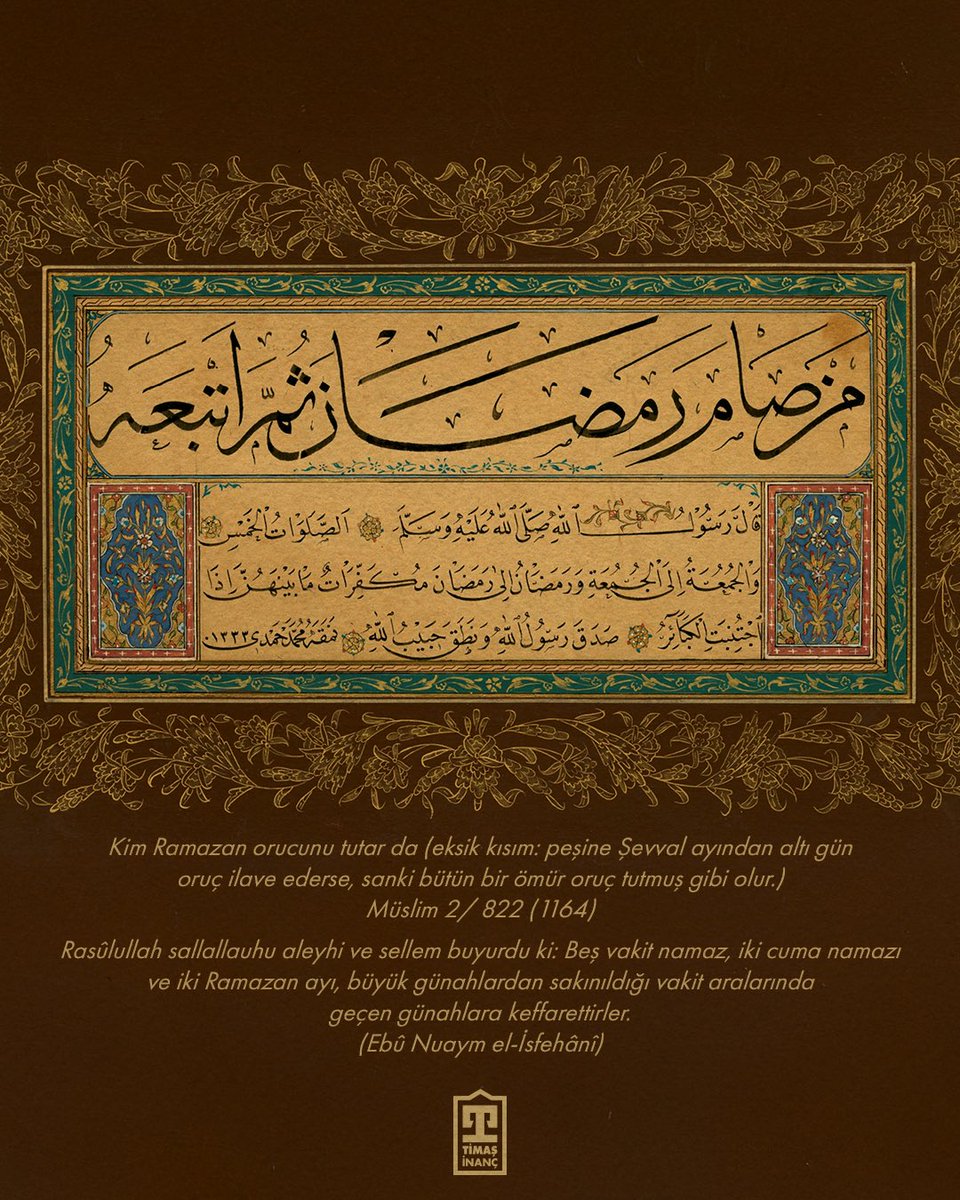 من صام رمضان ثم اتبعه
قال رسول الله صلى الله عليه وسلم الصلوات الخمس
والجمعة الى الجمعة ورمضان الى رمضان مكفرات ما بينهن اذا
اجتنبت الكبائر صدق رسول الله ونطق حبيب الله نمقه محمد حمدي ١٣٣٣
Kim Ramazan orucunu tutar da (eksik kısım: peşine Şevval ayından altı gün
oruç ilave ederse, sanki bütün bir ömür oruç tutmuş gibi olur.)
Müslim 2/ 822 (1164)
Rasûlullah sallallauhu aleyhi ve sellem buyurdu ki: Beş vakit namaz, iki cuma namazı
ve iki Ramazan ayı, büyük günahlardan sakınıldığı vakit aralarında
geçen günahlara keffarettirler.
(Ebû Nuaym el-İsfehânî)
TİMAŞ
İNANÇ